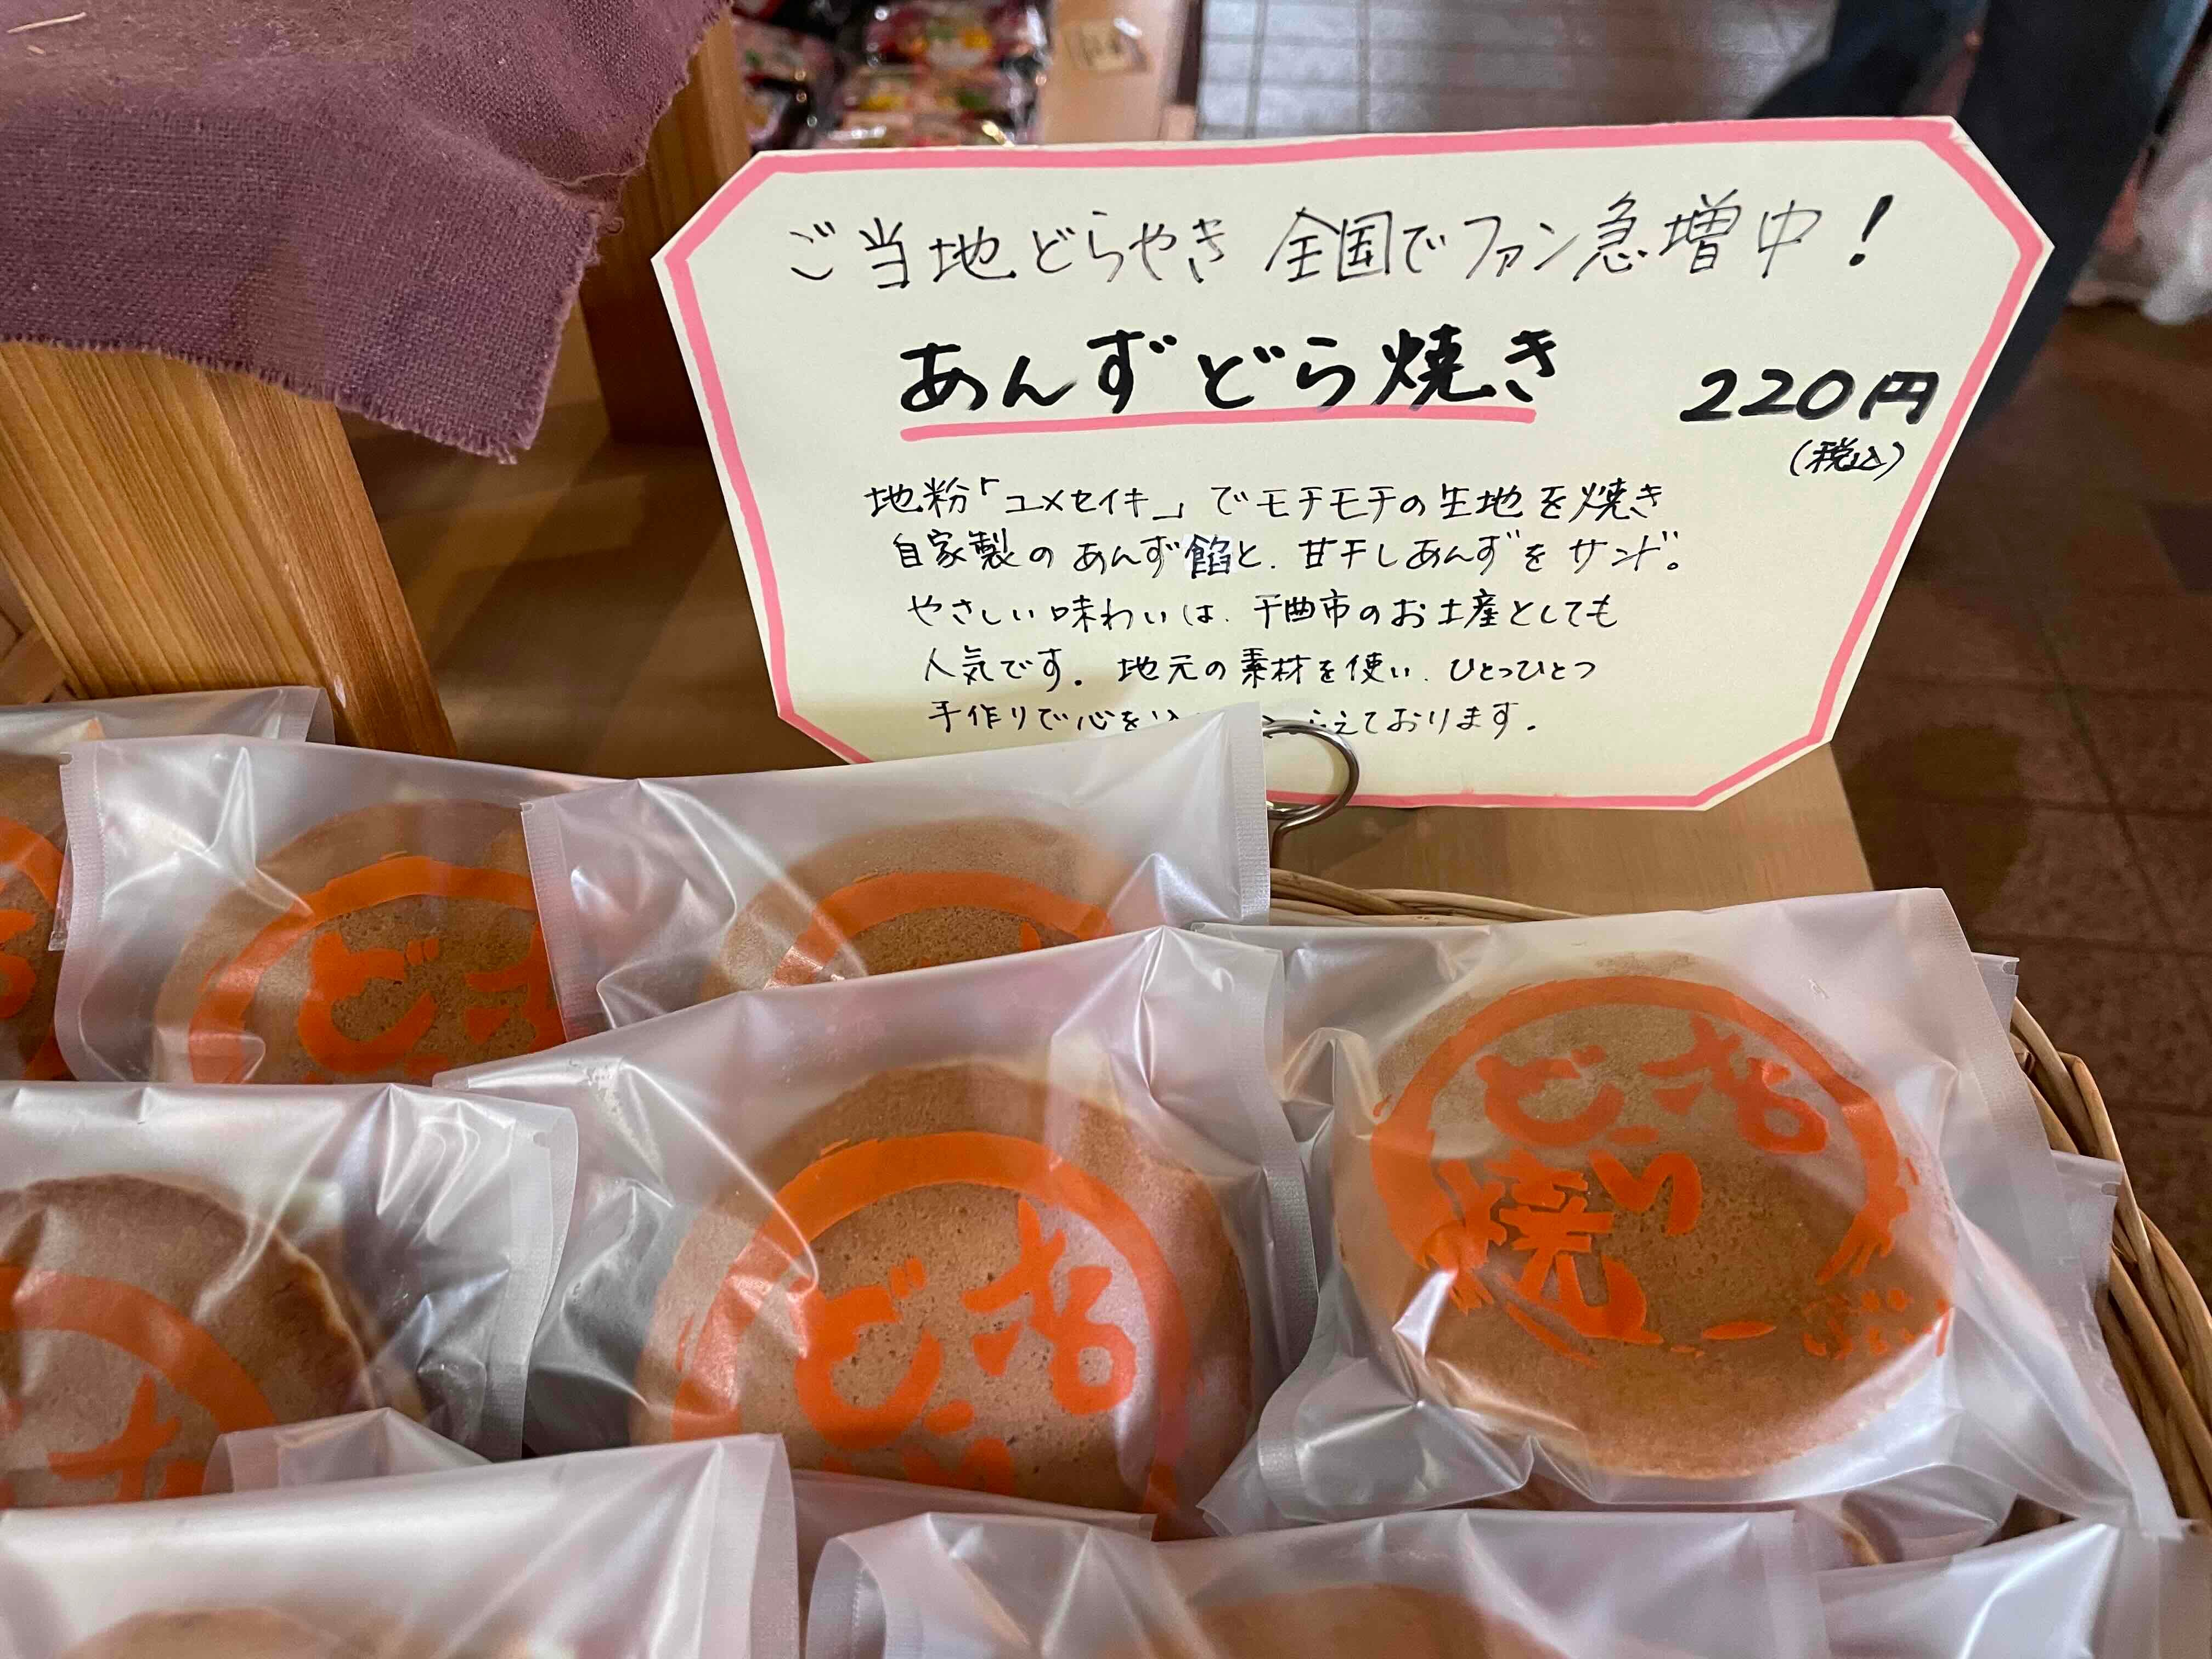 ご当地どらやき 全国でファン急増中!
あんずどら焼き
220円
(税込)
地粉「ユメセイキ」でモチモチの生地を焼き
自家製のあんず餡と、甘干しあんずをサンド。
やさしい味わいは、千曲市のお土産としても
人気です。地元の素材を使い、ひとつひとつ
手作りで心を えております。
ど
あん
どら
あん
どら
焼き